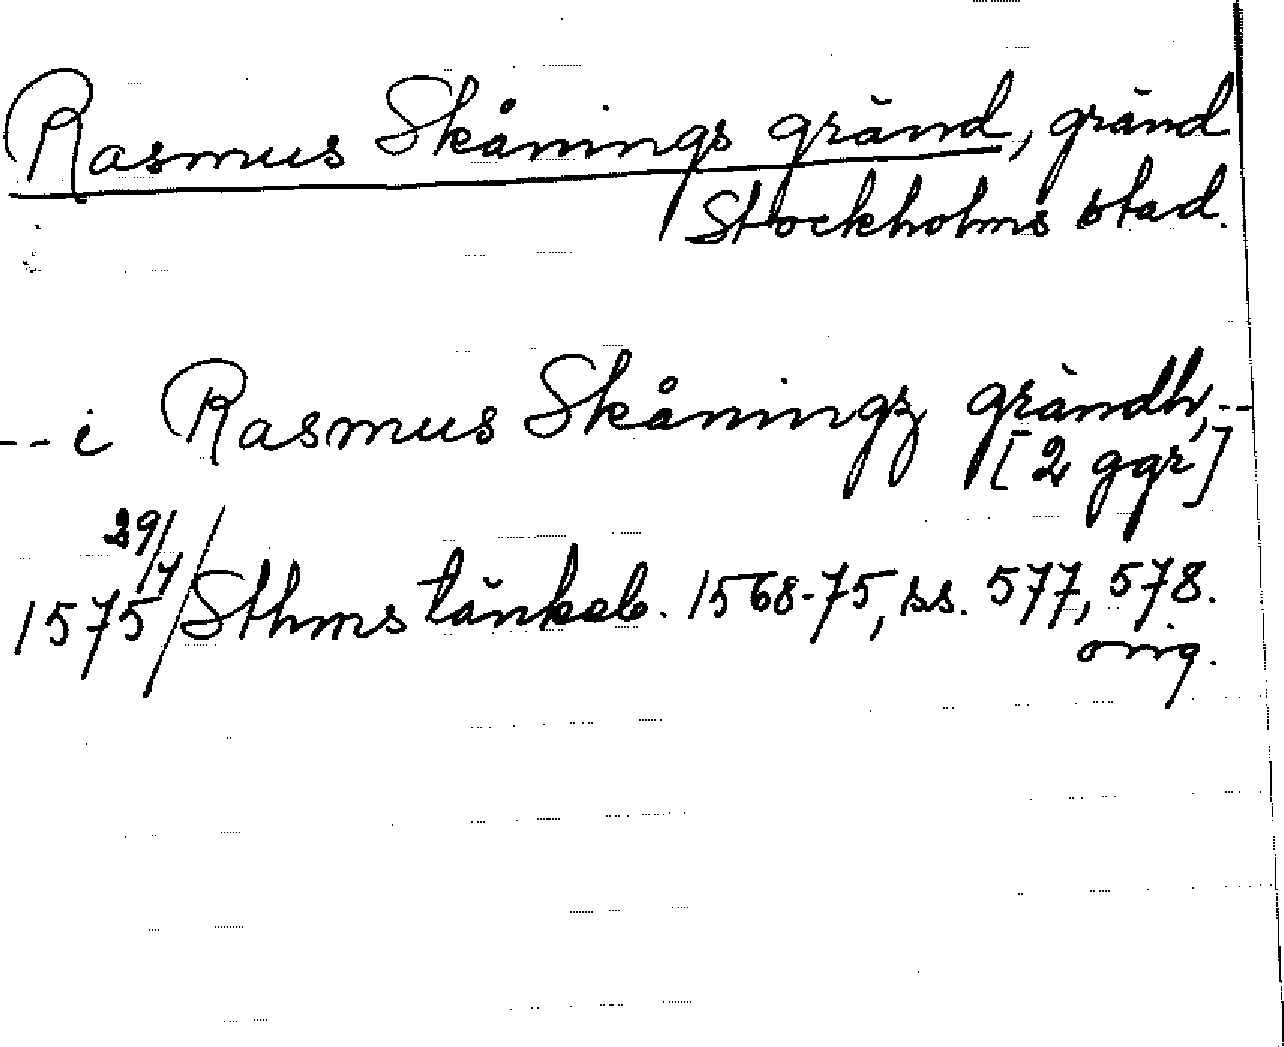 Rasmus Skånings gränd, gränd
Stockholms stad.
-- i Rasmus Skåningz grändh, --
[2 ggr]
29/7
1575/Sthms tänkeb. 1568-75, ss. 577, 578.
orig.